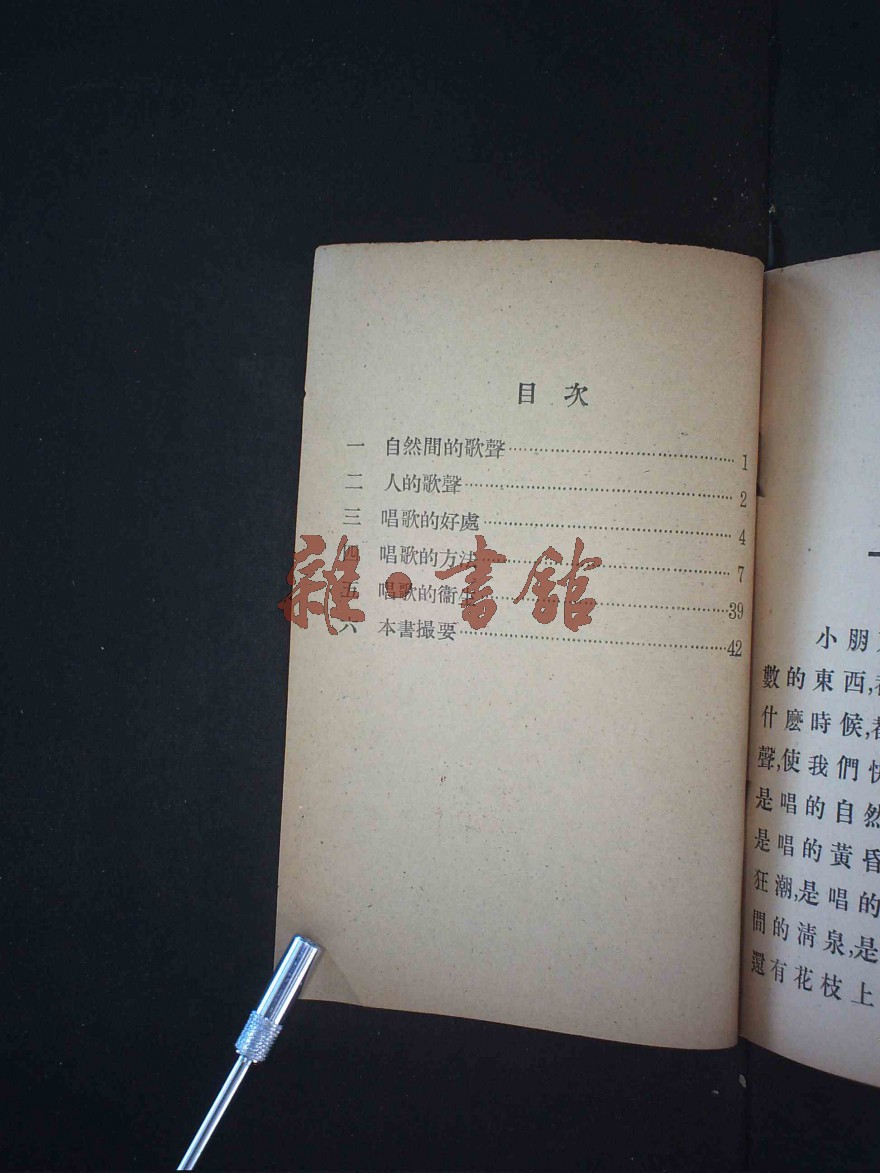 目次
一 自然間的歌聲 1
二 人的歌聲 2
三 唱歌的好處 4
四 唱歌的方法 7
五 唱歌的衞生 39
六 本書撮要 42
雜·書館
小朋
數的東西,
什麽時候,
聲,使我們
是唱的自然
是唱的黃昏
狂潮,是唱的
間的清泉,是
還有花枝上